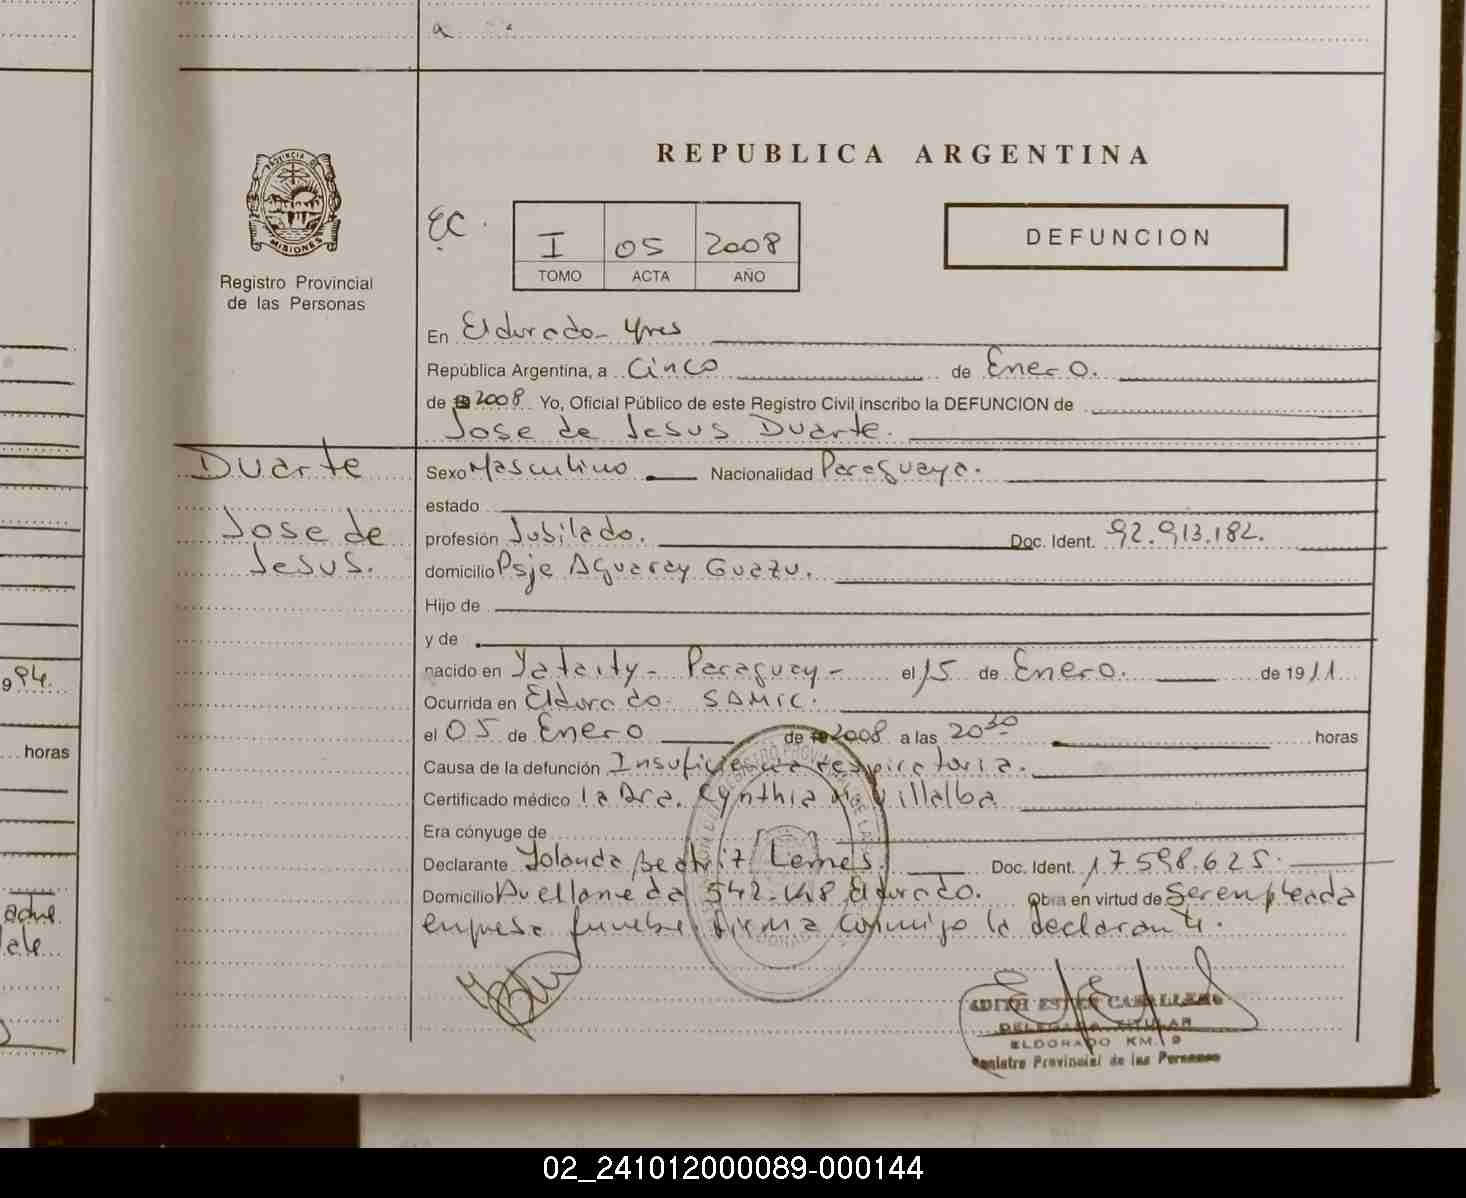 a
REPUBLICA ARGENTINA
PROVINCIA DE
MISIONES
Registro Provincial
de las Personas
EC.
I 05 2008
TOMO ACTA AÑO
DEFUNCION
En Eldorado - Mnes
República Argentina, a Cinco de Enero.
de 2008 Yo, Oficial Público de este Registro Civil inscribo la DEFUNCION de
Jose de Jesus Duarte.
Duarte
Jose de
Jesus.
Sexo Masculino Nacionalidad Paraguaya.
estado
profesión Jubilado. Doc. Ident. 92.913.182.
domicilio Psje Aguaray Guazu.
Hijo de
y de
nacido en Yataity - Paraguay - el 15 de Enero. de 1911
Ocurrida en Eldorado SAMIC.
el 05 de Enero de 2008 a las 20 30 horas
Causa de la defunción Insuficiencia respiratoria.
Certificado médico la Dra. Cynthia Villalba
Era cónyuge de
Declarante Yolanda Beatriz Lemes. Doc. Ident. 17.598.625.
Domicilio Avellaneda 542 Eldorado. Obra en virtud de Ser empleada
empresa funebre firma conmigo la declarante.
994
horas
EDITH ESTER CABALLERO
DELEGADA TITULAR
ELDORADO KM. 9
Registro Provincial de las Personas
02_241012000089-000144